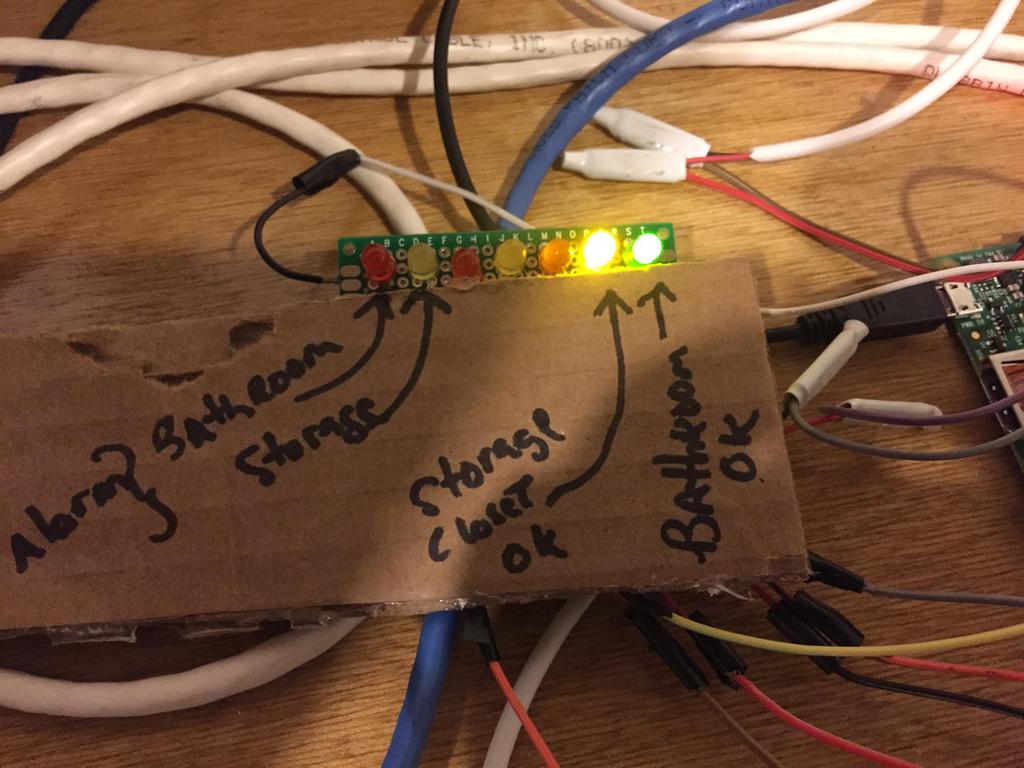 CABLE, INC. (800)
B C D E F G H I J K L M N O P R S T
Alarm
Bathroom
Storage
Storage
Closet
OK
Bathroom
OK